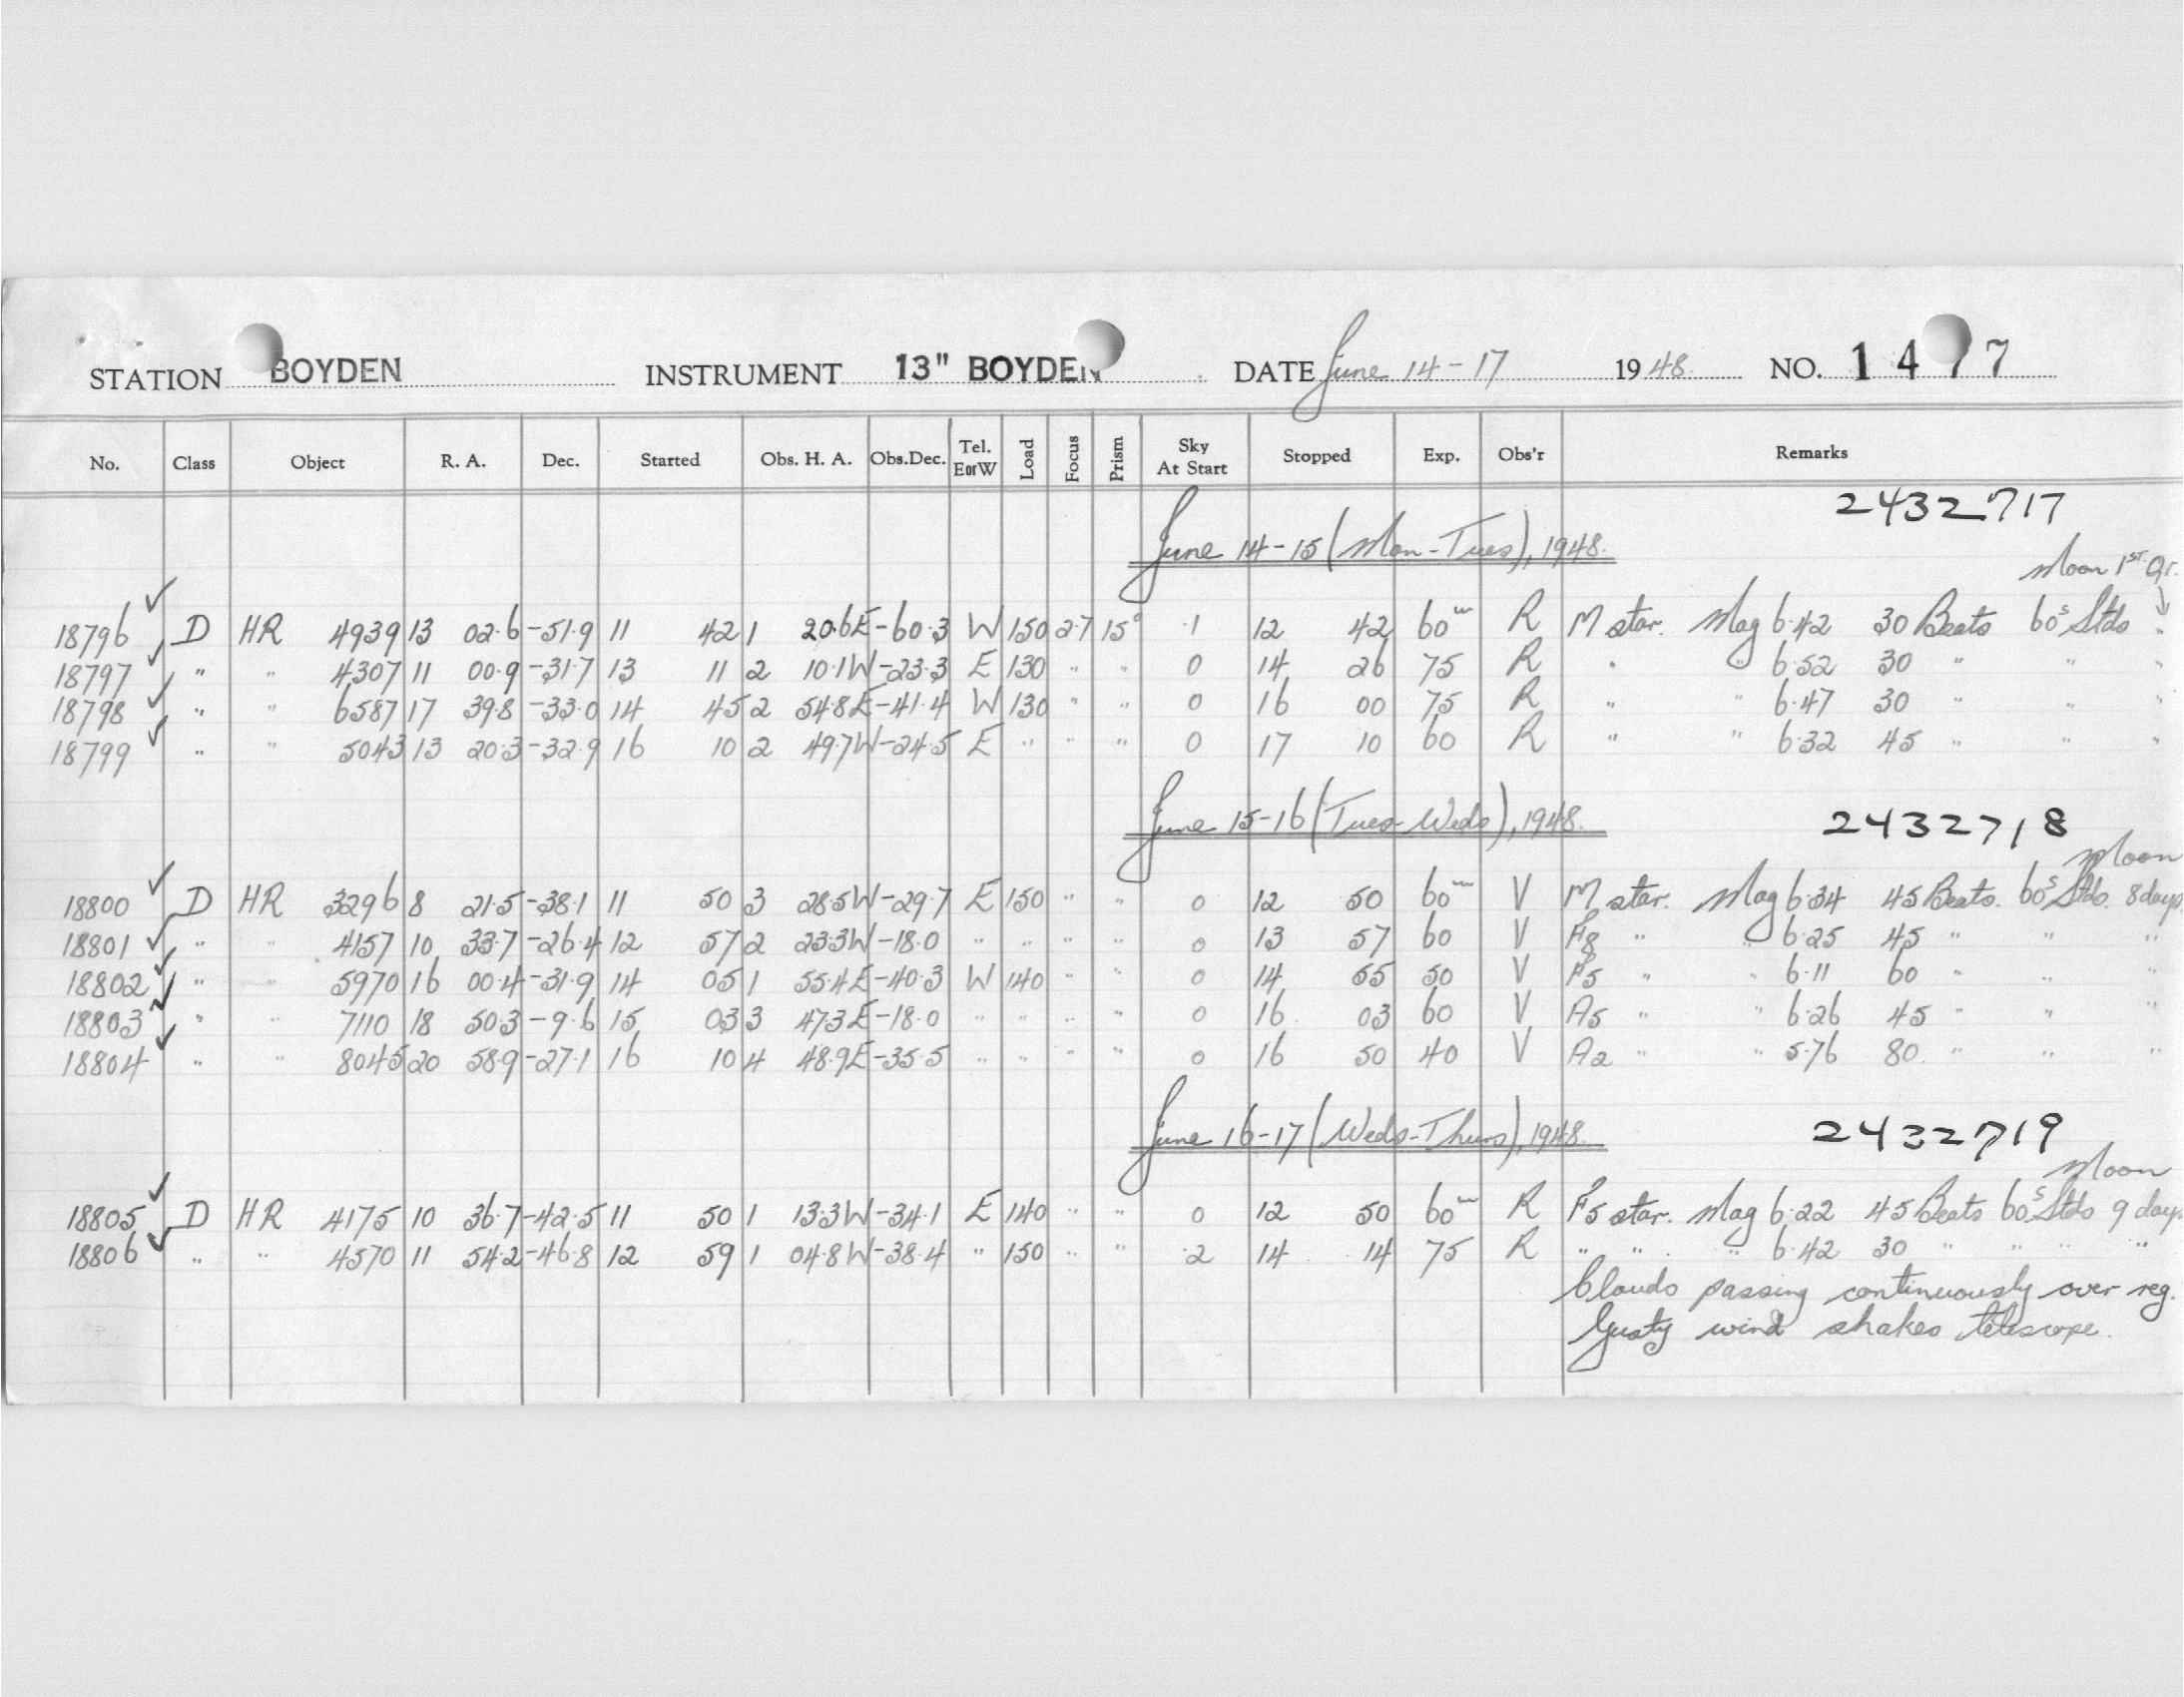 STATION BOYDEN INSTRUMENT 13" BOYDEN DATE June 14-17 1948 NO. 1477
No. Class Object R. A. Dec. Started Obs. H. A. Obs.Dec. Tel. E or W Load Focus Prism Sky At Start Stopped Exp. Obs'r Remarks
2432717
June 14-15 (Mon-Tues), 1948.
Moon 1ST Qr.
18796 ✓ D HR 4939 13 02.6 -51.9 11 42 1 20.6E -60.3 W 150 2.7 15° .1 12 42 60m R M star. Mag 6.42 30 Beats 60s Stds "
18797 ✓ " " 4307 11 00.9 -31.7 13 11 2 10.1W -23.3 E 130 " " 0 14 26 75 R " " 6.52 30 " " "
18798 ✓ " " 6587 17 39.8 -33.0 14 45 2 54.8E -41.4 W 130 " " 0 16 00 75 R " " 6.47 30 " " "
18799 ✓ " " 5043 13 20.3 -32.9 16 10 2 49.7W -24.5 E " " " 0 17 10 60 R " " 6.32 45 " " "
June 15-16 (Tues-Weds), 1948.
2432718
Moon
18800 ✓ D HR 3296 8 21.5 -38.1 11 50 3 28.5W -29.7 E 150 " " 0 12 50 60m V M star. Mag 6.34 45 Beats. 60s Stds. 8 days
18801 ✓ " " 4157 10 33.7 -26.4 12 57 2 23.3W -18.0 " " " " 0 13 57 60 V F8 " " 6.25 45 " " "
18802 ✓ " " 5970 16 00.4 -31.9 14 05 1 55.4E -40.3 W 140 " " 0 14 55 50 V F5 " " 6.11 60 " " "
18803 ✓ " " 7110 18 50.3 -9.6 15 03 3 47.3E -18.0 " " " " 0 16 03 60 V A5 " " 6.26 45 " " "
18804 ✓ " " 8045 20 58.9 -27.1 16 10 4 48.9E -35.5 " " " " 0 16 50 40 V A2 " " 5.76 80. " " "
June 16-17 (Weds-Thurs), 1948.
2432719
Moon
18805 ✓ D HR 4175 10 36.7 -42.5 11 50 1 13.3W -34.1 E 140 " " 0 12 50 60m R F5 star. Mag 6.22 45 Beats 60s Stds 9 days
18806 ✓ " " 4570 11 54.2 -46.8 12 59 1 04.8W -38.4 " 150 " " .2 14 14 75 R " " " 6.42 30 " " " "
Clouds passing continuously over reg.
Gusty wind shakes telescope.